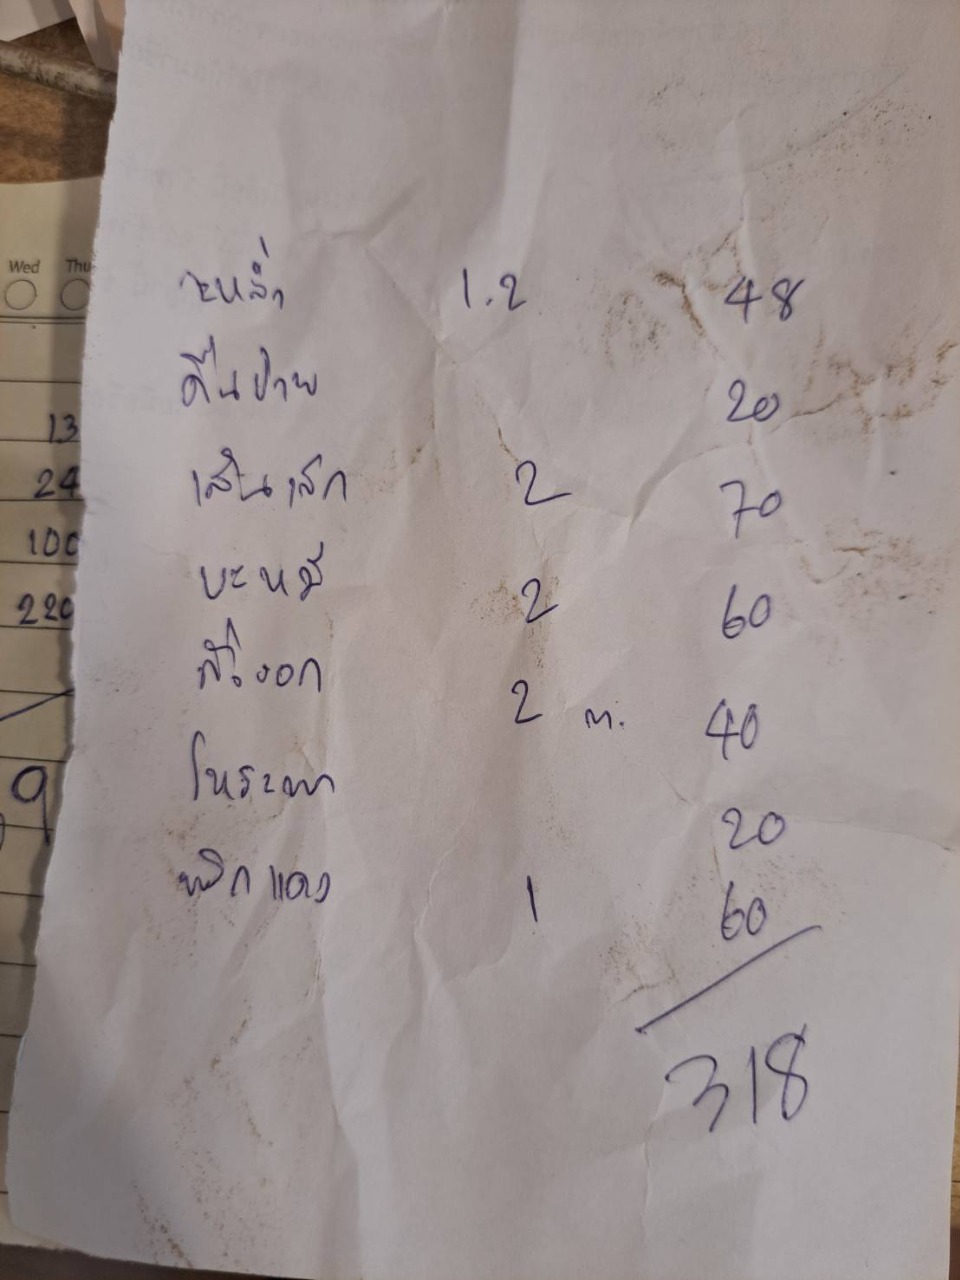 Wed Thu
13
24
100
220
9
ะหล่ำ 1.2 48
คื่นช่าย 20
เส้นเล็ก 2 70
บะหมี่ 2 60
ถั่วงอก 2 ก. 40
โหระพา 20
พริกแดง 1 60
318